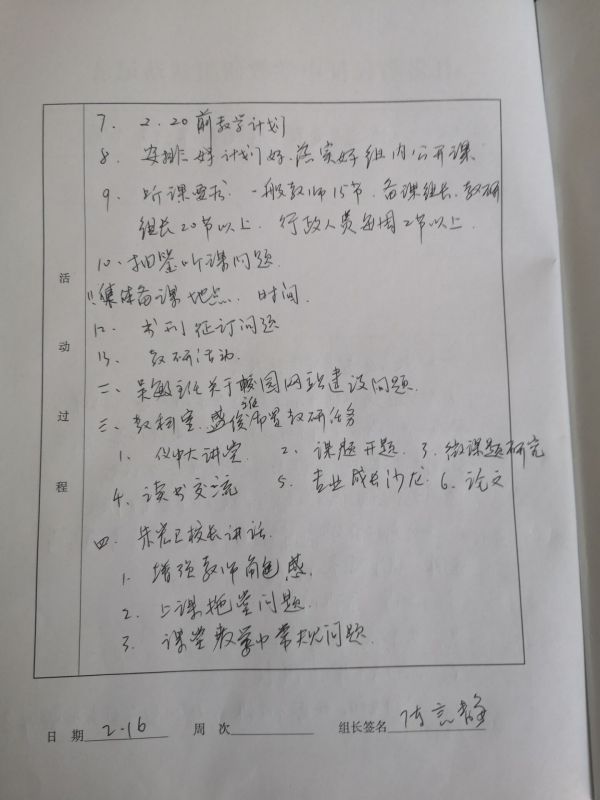 7. 2.20前教学计划
8. 安排好计划好、落实好组内公开课
9. 听课要求. 一般教师15节. 备课组长、教研
组长20节以上. 行政人员每周2节以上.
10. 抽签听课问题.
11.集体备课地点、时间.
12. 书刊征订问题
13. 教研活动.
二、吴敏主任关于校园网站建设问题.
三、教科室 盛俊 布置教研任务
1. 仪中大讲堂 2. 课题开题. 3. 微课题研究
4. 读书交流 5. 专业成长沙龙. 6. 论文
四. 朱 卫校长讲话.
1. 增强教师角色感.
2. 上课拖堂问题.
3. 课堂教学中常规问题.
活动过程
日 期 2.16 周 次 组长签名